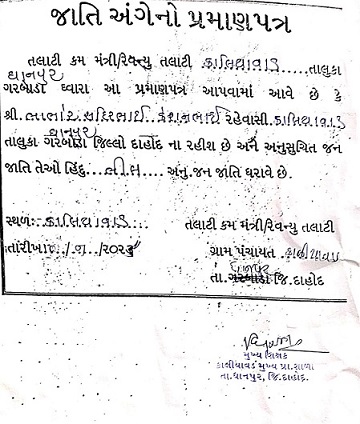 જાતિ અંગેનો પ્રમાણપત્ર
તલાટી કમ મંત્રી/રેવન્યુ તલાટી કાલિયાવાડ તાલુકા
ધાનપુર
ગરબાડા ધ્વારા આ પ્રમાણપત્ર આપવામાં આવે છે કે
શ્રી. રહેવાસી. કાલિયાવાડ
ધાનપુર
તાલુકા ગરબાડા જિલ્લો દાહોદ ના રહીશ છે અને અનુસુચિત જન
જાતિ તેઓ હિંદુ ભીલ અનુ.જન જાતિ ધરાવે છે.
સ્થળઃ કાલિયાવાડ તલાટી કમ મંત્રી/રિવન્યુ તલાટી
તારીખ ગ્રામ પંચાયત
ધાનપુર
તા. ગરબાડા જિ.દાહોદ
મુખ્ય શિક્ષક
કાળીયાવડ મુખ્ય પ્રા.શાળા
તા.ધાનપુર, જિ.દાહોદ